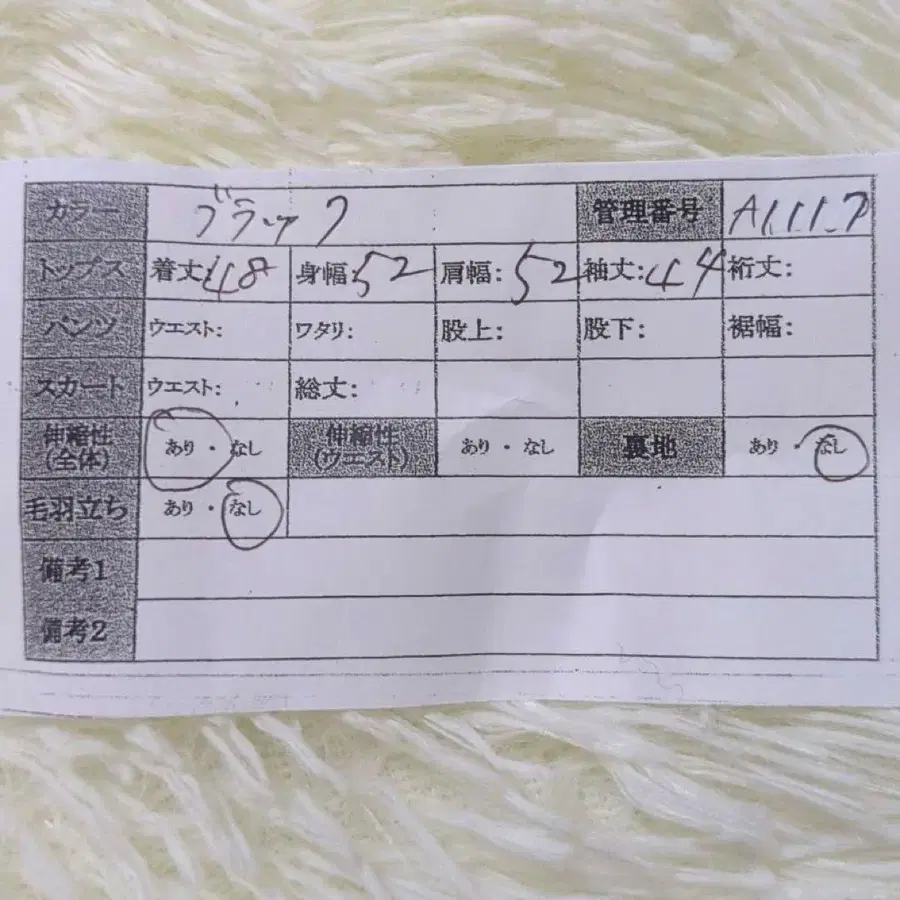 カラー ブラック 管理番号 A1117
トップス 着丈:48 身幅:52 肩幅:52 袖丈:44 裄丈:
パンツ ウエスト: ワタリ: 股上: 股下: 裾幅:
スカート ウエスト: 総丈:
伸縮性(全体) あり・なし 伸縮性(ウエスト) あり・なし 裏地 あり・なし
毛羽立ち あり・なし
備考1
備考2